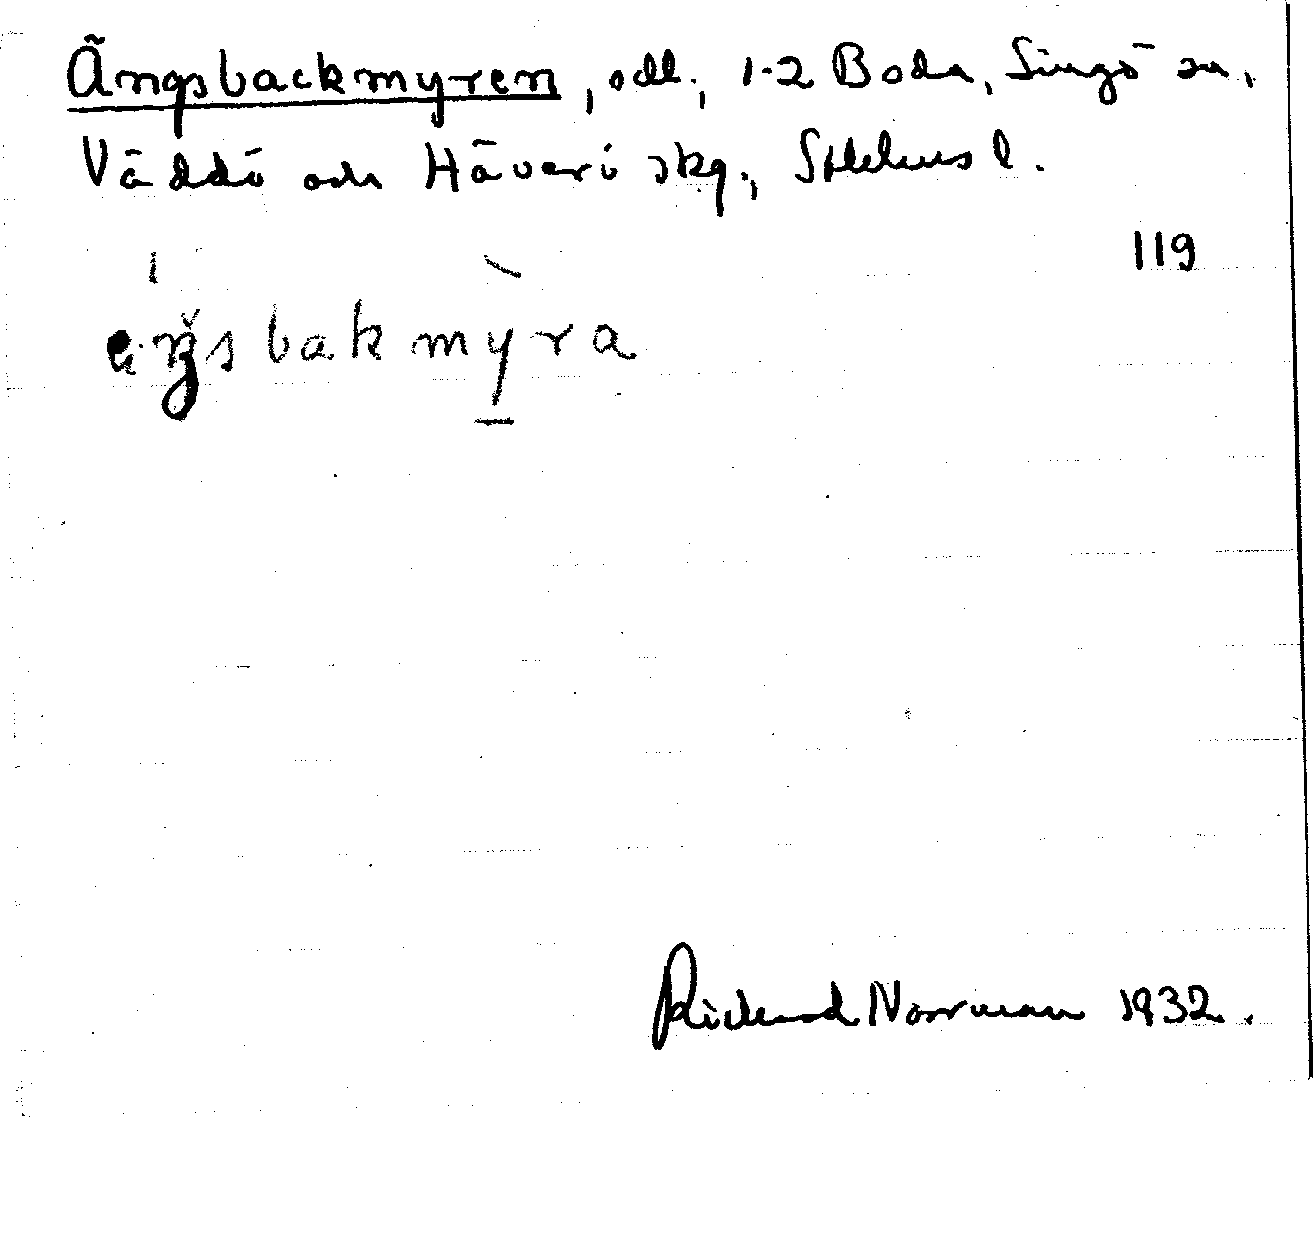 Ängsbackmyren, odl., 1-2 Boda, Singö sn,
Väddö och Häverö skg., Sthlms l.
119
äŋsbakmyra
Rickard Norrman 1932.